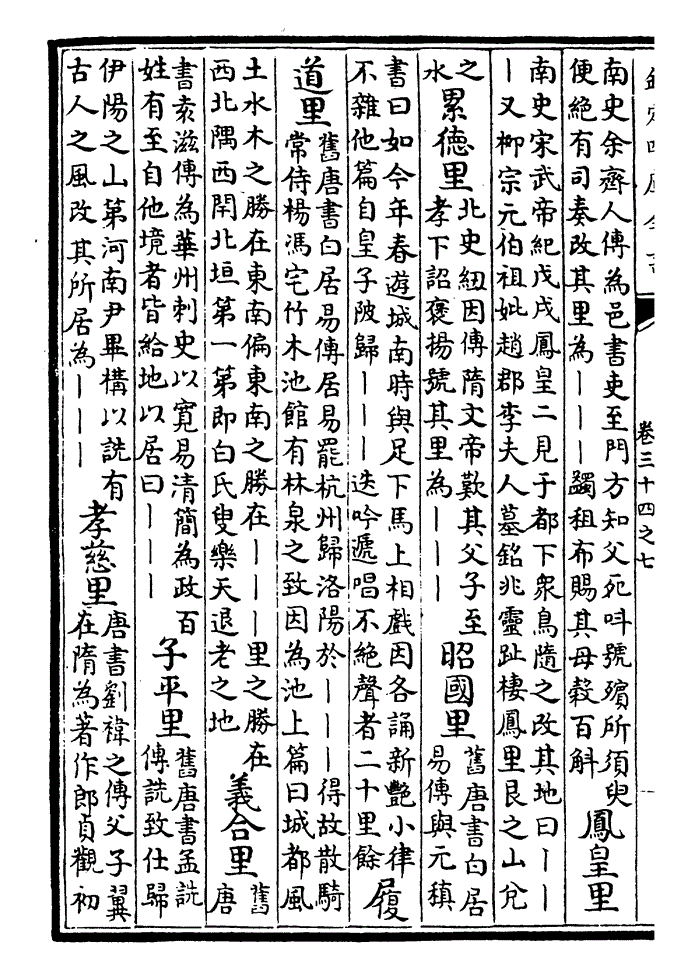 欽定四庫全書
卷三十四之七
南史余齊人傳為邑書吏至門方知父死呌號殯所須臾
便絶有司奏改其里為丨丨丨蠲租布賜其母榖百斛
鳳皇里
南史宋武帝紀戊戌鳳皇二見于都下衆鳥隨之改其地曰丨丨
丨又栁宗元伯祖妣趙郡李夫人墓銘兆靈趾棲鳳里艮之山兊
之
水
累德里
北史紐因傳隋文帝歎其父子至
孝下詔襃揚號其里為丨丨丨
昭國里
舊唐書白居
易傳與元稹
書曰如今年春遊城南時與足下馬上相戲因各誦新艶小律
不雜他篇自皇子陂歸丨丨丨迭吟遞唱不絶聲者二十里餘
履
道里
舊唐書白居易傳居易罷杭州歸洛陽於丨丨丨得故散騎
常侍楊馮宅竹木池館有林泉之致因為池上篇曰城都風
土水木之勝在東南偏東南之勝在丨丨丨里之勝在
西北隅西閈北垣第一第即白氏叟樂天退老之地
義合里
舊
唐
書袁滋傳為華州刺史以寛易清簡為政百
姓有至自他境者皆給地以居曰丨丨丨
子平里
舊唐書孟詵
傳詵致仕歸
伊陽之山第河南尹畢構以詵有
古人之風改其所居為丨丨丨
孝慈里
唐書劉禕之傳父子翼
在隋為著作郎貞觀初